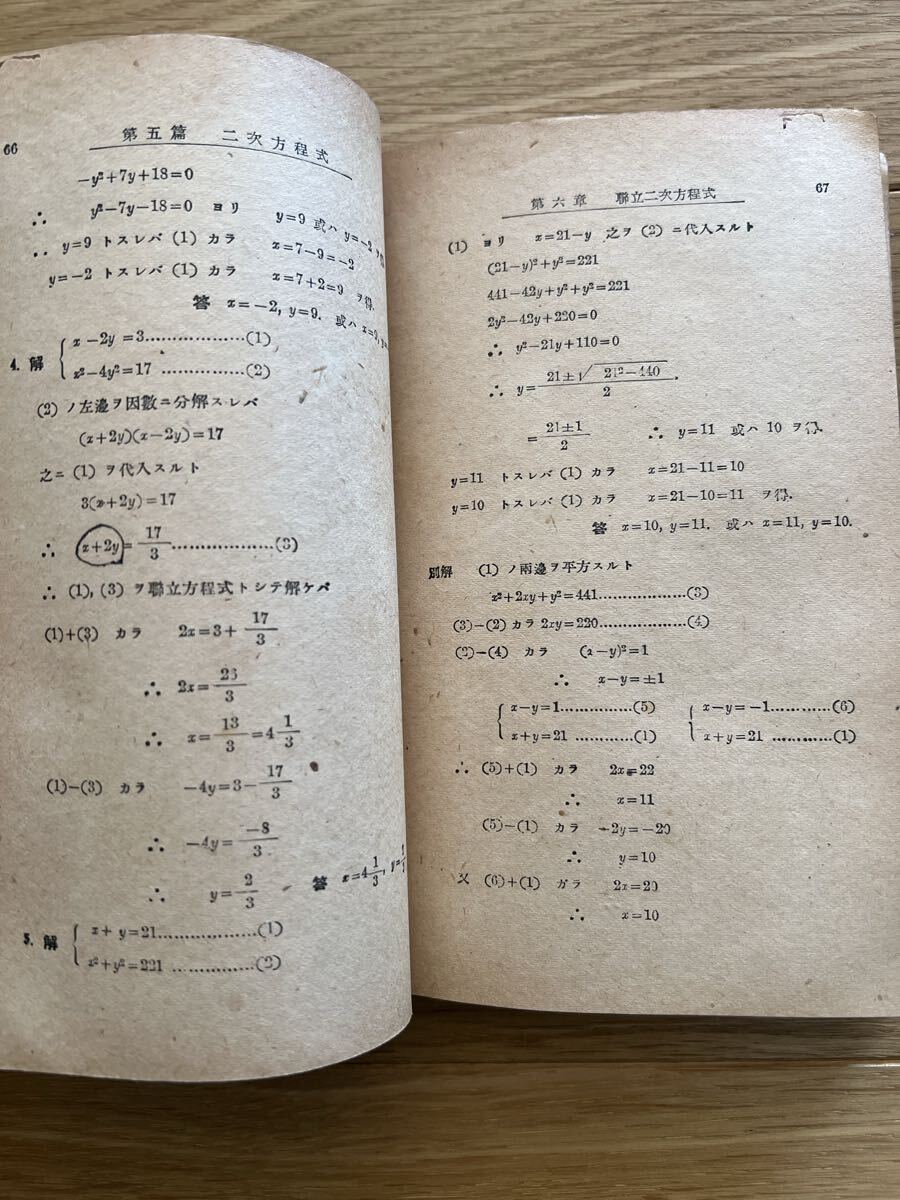 66
第五篇 二次方程式
-y²+7y+18=0
∴ y²-7y-18=0 ヨリ y=9 或ハ y=-2 ヲ
∴ y=9 トスレバ (1) カラ x=7-9=-2
y=-2 トスレバ (1) カラ x=7+2=9 ヲ得.
答 x=-2, y=9. 或ハ x=9,
4. 解 { x-2y=3………………(1)
x²-4y²=17 ……………(2)
(2) ノ左邊ヲ因數ニ分解スレバ
(x+2y)(x-2y)=17
之ニ (1) ヲ代入スルト
3(x+2y)=17
∴ x+2y=17/3………………(3)
∴ (1), (3) ヲ聯立方程式トシテ解ケバ
(1)+(3) カラ 2x=3+17/3
∴ 2x=26/3
∴ x=13/3=4 1/3
(1)-(3) カラ -4y=3-17/3
∴ -4y=-8/3
∴ y=2/3
答 x=4 1/3, y=2/3
5. 解 { x+y=21………………(1)
x²+y²=221 ……………(2)
第六章 聯立二次方程式
67
(1) ヨリ x=21-y 之ヲ (2) ニ代入スルト
(21-y)²+y²=221
441-42y+y²+y²=221
2y²-42y+220=0
∴ y²-21y+110=0
∴ y=(21±√(21²-440))/2.
=(21±1)/2 ∴ y=11 或ハ 10 ヲ得.
y=11 トスレバ (1) カラ x=21-11=10
y=10 トスレバ (1) カラ x=21-10=11 ヲ得.
答 x=10, y=11. 或ハ x=11, y=10.
別解 (1) ノ兩邊ヲ平方スルト
x²+2xy+y²=441………………(3)
(3)-(2) カラ 2xy=220………………(4)
(2)-(4) カラ (x-y)²=1
∴ x-y=±1
{ x-y=1……………(5) { x-y=-1…………(6)
x+y=21 …………(1) x+y=21 …………(1)
∴ (5)+(1) カラ 2x=22
∴ x=11
(5)-(1) カラ -2y=-20
∴ y=10
又 (6)+(1) ガラ 2x=20
∴ x=10